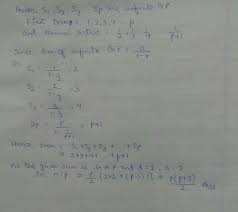 Given, S₁, S₂, S₃ ... Sp are infinite GP
First terms = 1, 2, 3, 4 ... p
and common ratio = 1/2, 1/3, 1/4 ... 1/p+1
Since sum of infinite G.P. = a/1-r
S₁ = 1/1-1/2 = 2
S₂ = 2/1-1/3 = 3
S₃ = 3/1-1/4 = 4
Sp = p/1-1/p+1 = p+1
Hence sum = S₁+S₂+S₃+...+Sp
⇒ 2+3+4+...+p+1
As the given sum is in A.P and d=1, a=2
p/2 [2×2+(p-1)1] ⇒ p(p+3)/2 Ans